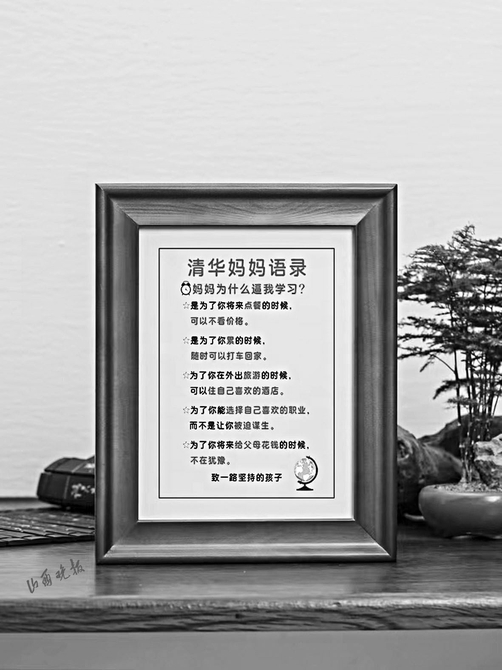 清华妈妈语录
妈妈为什么逼我学习?
☆是为了你将来点餐的时候,
可以不看价格。
☆是为了你累的时候,
随时可以打车回家。
☆为了你在外出旅游的时候,
可以住自己喜欢的酒店。
☆为了你能选择自己喜欢的职业,
而不是让你被迫谋生。
☆为了你将来给父母花钱的时候,
不在犹豫。
致一路坚持的孩子
山西晚报